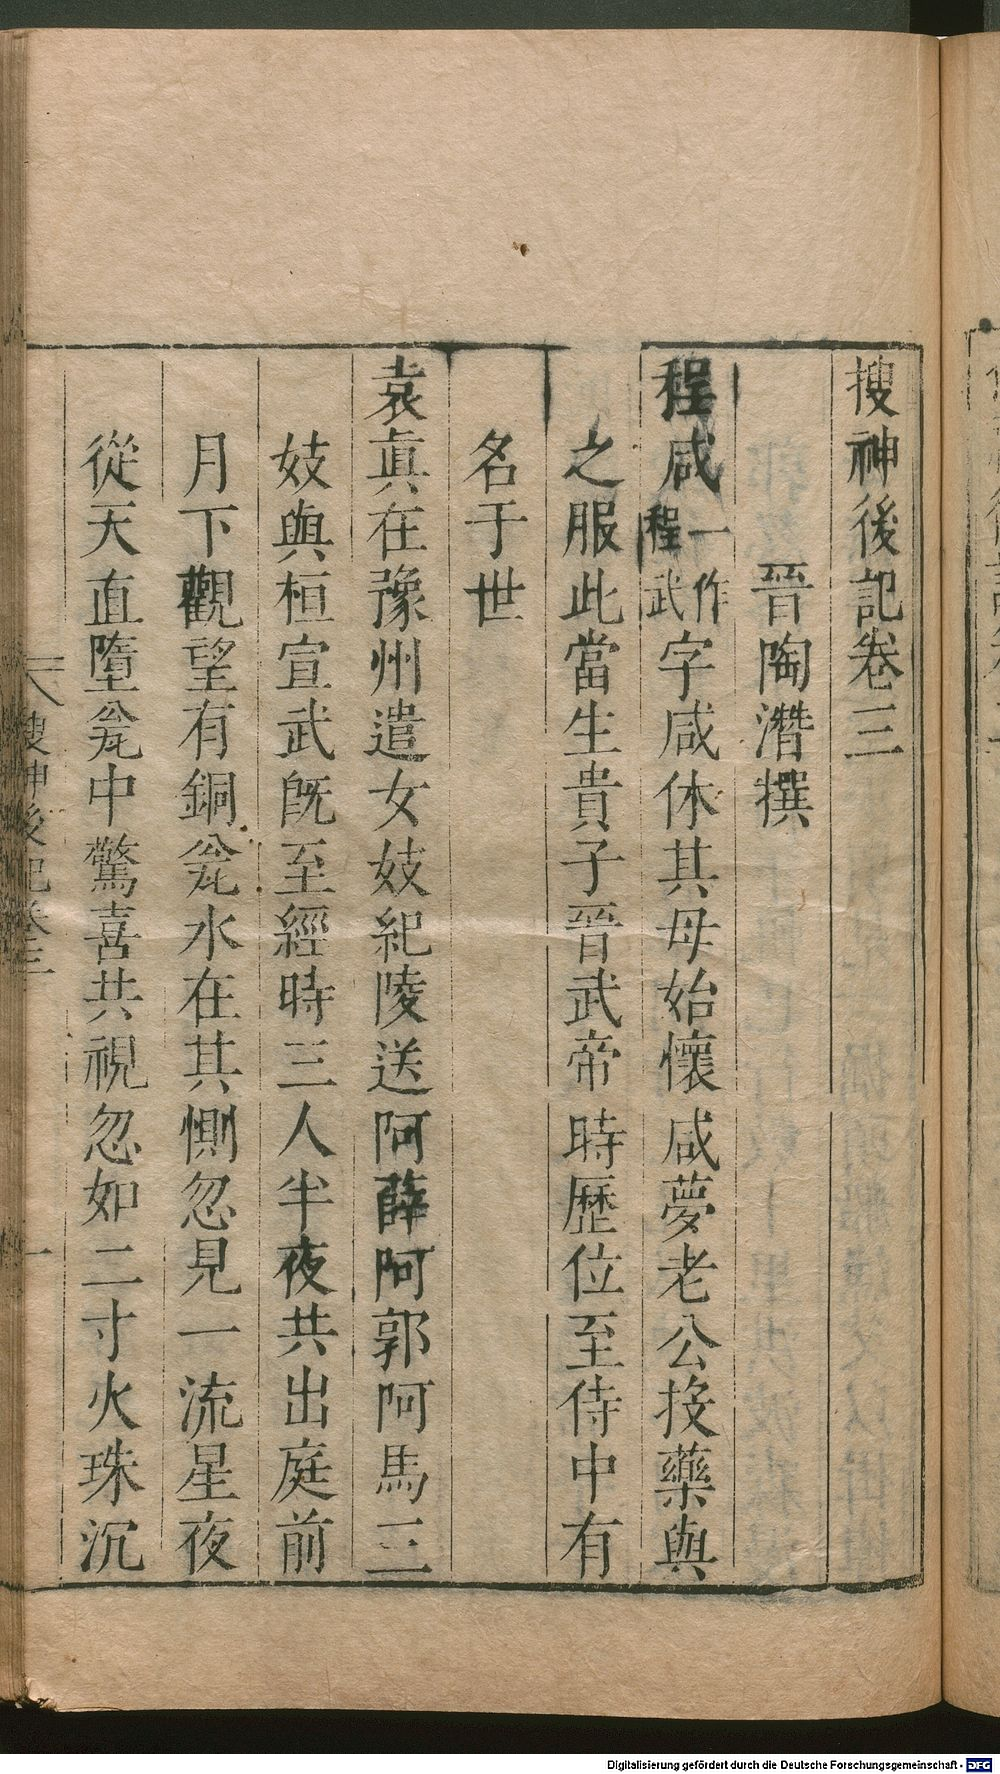 搜神後記卷三
晉陶潛撰
程咸一作程武字咸休其母始懷咸夢老公投藥與
之服此當生貴子晉武帝時歷位至侍中有
名于世
袁眞在豫州遣女妓紀陵送阿薛阿郭阿馬三
妓與桓宣武旣至經時三人半夜共出庭前
月下觀望有銅瓮水在其惻忽見一流星夜
從天直墮瓮中驚喜共視忽如二寸火珠沉
搜神後記卷三
一
Digitalisierung gefördert durch die Deutsche Forschungsgemeinschaft - DFG